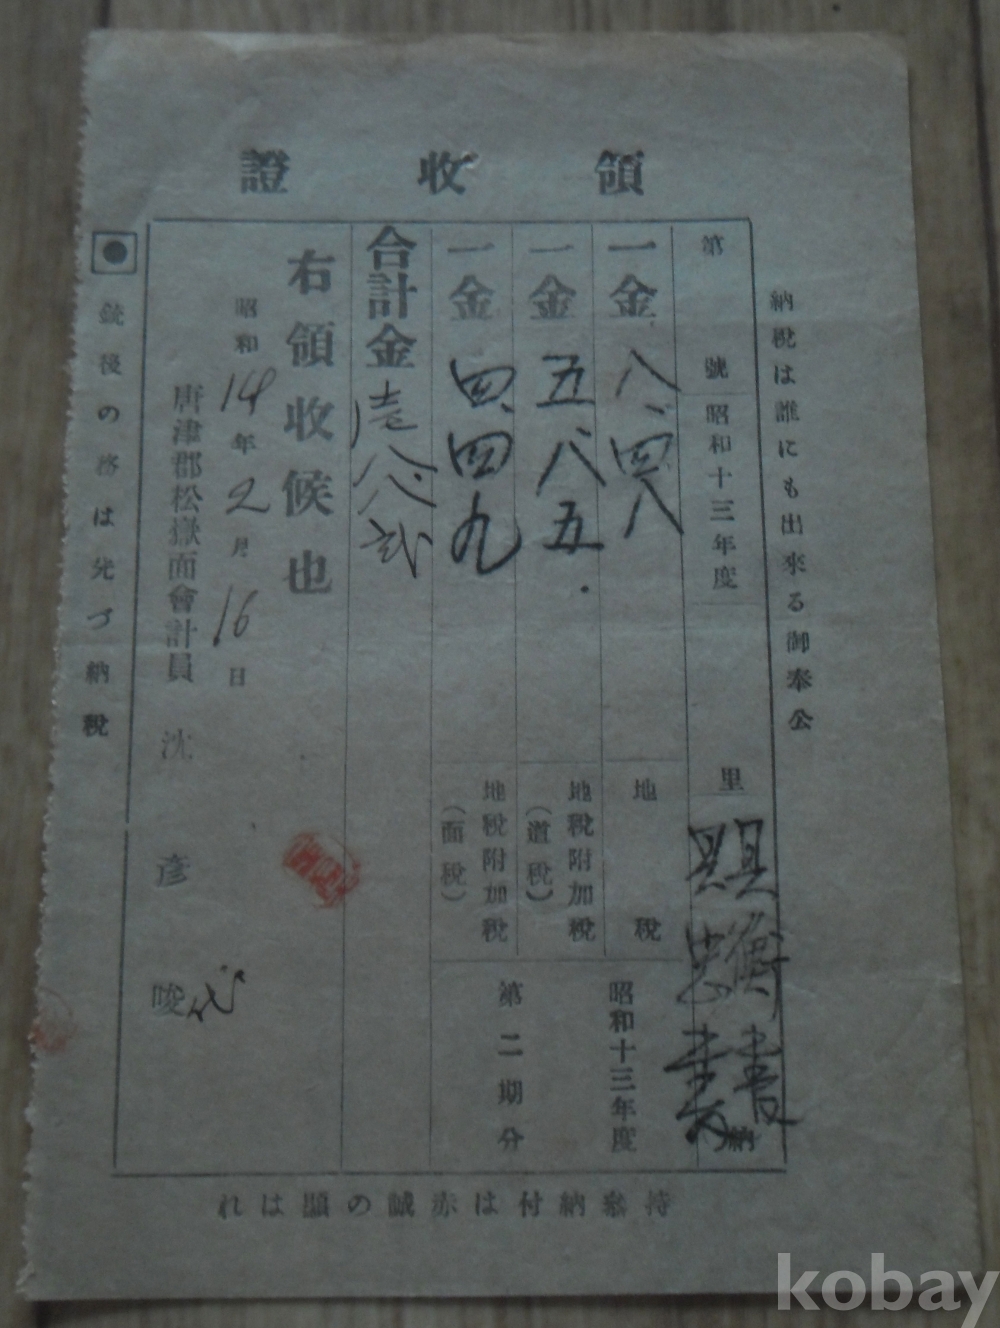 領收證
納稅は誰にも出來る御奉公
第 號 昭和十三年度 里 納
一金 八、四八 地稅 昭和十三年度
一金 五八五. 地稅附加稅(道稅) 第二期分
一金 四、四九 地稅附加稅(面稅)
合計金 壱八、八弐
右領收候也
昭和14年2月16日
唐津郡松嶽面會計員 沈彦晙 代
銃後の務は先づ納稅
持參納付は赤誠の顯はれ
kobay